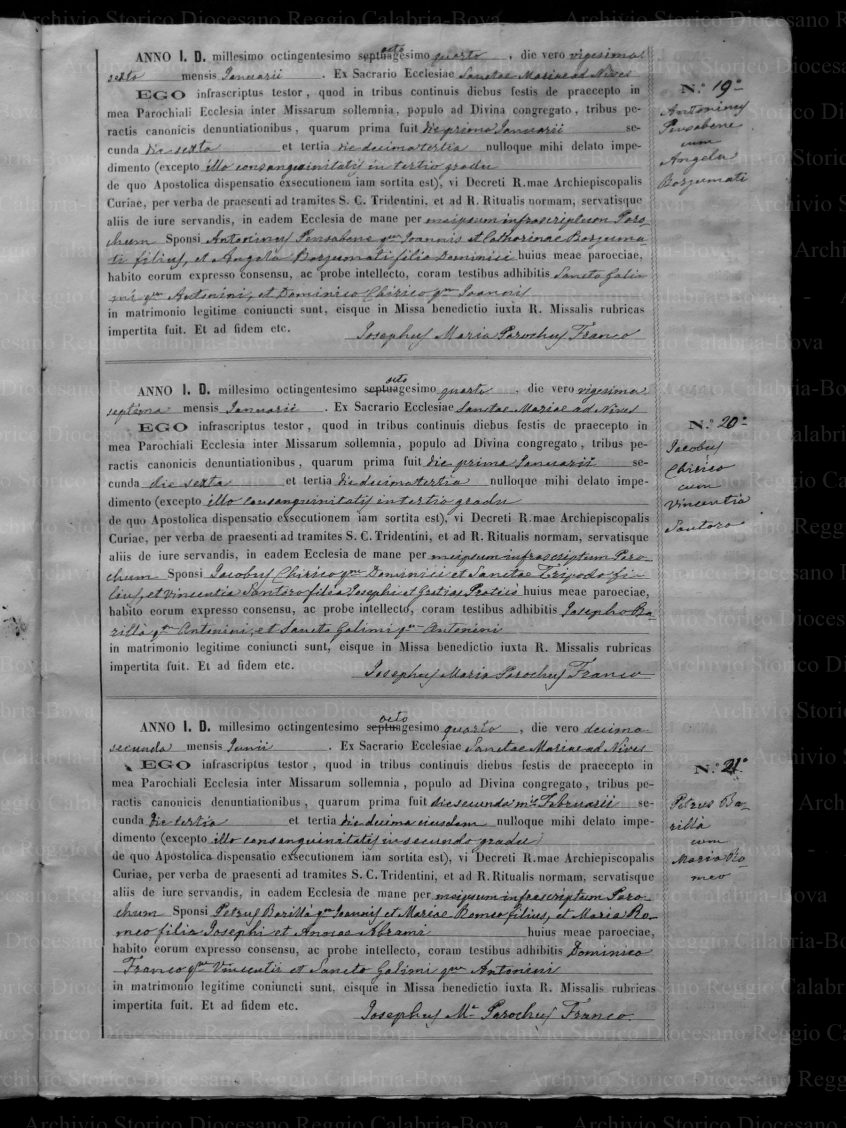 ANNO I. D. millesimo octingentesimo septuagesimo octo quarto , die vero vigesima
sexto mensis Januarii . Ex Sacrario Ecclesiae Sanctae Mariae ad Nives
EGO infrascriptus testor, quod in tribus continuis diebus festis de praecepto in
mea Parochiali Ecclesia inter Missarum sollemnia, populo ad Divina congregato, tribus pe-
ractis canonicis denuntiationibus, quarum prima fuit die primo Januarii se-
cunda die sexta et tertia die decimatertia nulloque mihi delato impe-
dimento (excepto illo consanguinitatis in tertio gradu
de quo Apostolica dispensatio exsecutionem iam sortita est), vi Decreti R.mae Archiepiscopalis
Curiae, per verba de praesenti ad tramites S. C. Tridentini, et ad R. Ritualis normam, servatisque
aliis de iure servandis, in eadem Ecclesia de mane per meipsum infrascriptum Paro
chum Sponsi Antoninus Pensabene qm Joannis et Catharinae Borzuma
ti filius, et Angela Borzumati filia Dominici huius meae paroeciae,
habito eorum expresso consensu, ac probe intellecto, coram testibus adhibitis Sancto Galim
mi qm Antonini, et Dominico Chirico qm Joannis
in matrimonio legitime coniuncti sunt, eisque in Missa benedictio iuxta R. Missalis rubricas
impertita fuit. Et ad fidem etc. Josephus Maria Parochus Franco
N.º 19º
Antoninus
Pensabene
cum
Angela
Borzumati
ANNO I. D. millesimo octingentesimo septuagesimo octo quarto , die vero vigesima
septima mensis Januarii . Ex Sacrario Ecclesiae Sanctae Mariae ad Nives
EGO infrascriptus testor, quod in tribus continuis diebus festis de praecepto in
mea Parochiali Ecclesia inter Missarum sollemnia, populo ad Divina congregato, tribus pe-
ractis canonicis denuntiationibus, quarum prima fuit die prima Januarii se-
cunda die sexta et tertia die decimatertia nulloque mihi delato impe-
dimento (excepto illo consanguinitatis in tertio gradu
de quo Apostolica dispensatio exsecutionem iam sortita est), vi Decreti R.mae Archiepiscopalis
Curiae, per verba de praesenti ad tramites S. C. Tridentini, et ad R. Ritualis normam, servatisque
aliis de iure servandis, in eadem Ecclesia de mane per meipsum infrascriptum Paro-
chum Sponsi Jacobus Chirico qm Dominici et Sanctae Tripodo fi-
lius, et Vincentia Santoro filia Josephi et Gratiae Praticò huius meae paroeciae,
habito eorum expresso consensu, ac probe intellecto, coram testibus adhibitis Josepho Ba-
rillà qm Antonini, et Sancto Galimi qm Antonini
in matrimonio legitime coniuncti sunt, eisque in Missa benedictio iuxta R. Missalis rubricas
impertita fuit. Et ad fidem etc. Josephus Maria Parochus Franco
N.º 20º
Jacobus
Chirico
cum
Vincentia
Santoro
ANNO I. D. millesimo octingentesimo septuagesimo octo quarto , die vero decima
secunda mensis Junii . Ex Sacrario Ecclesiae Sanctae Mariae ad Nives
EGO infrascriptus testor, quod in tribus continuis diebus festis de praecepto in
mea Parochiali Ecclesia inter Missarum sollemnia, populo ad Divina congregato, tribus pe-
ractis canonicis denuntiationibus, quarum prima fuit die secunda mis Februarii se-
cunda die tertia et tertia die decima eiusdem nulloque mihi delato impe-
dimento (excepto illo consanguinitatis in secundo gradu
de quo Apostolica dispensatio exsecutionem iam sortita est), vi Decreti R.mae Archiepiscopalis
Curiae, per verba de praesenti ad tramites S. C. Tridentini, et ad R. Ritualis normam, servatisque
aliis de iure servandis, in eadem Ecclesia de mane per meipsum infrascriptum Paro-
chum Sponsi Petrus Barillà qm Joannis et Mariae Romeo filius, et Maria Ro-
meo filia Josephi et Annae Abrami huius meae paroeciae,
habito eorum expresso consensu, ac probe intellecto, coram testibus adhibitis Dominico
Franco qm Vincentii et Sancto Galimi qm Antonini
in matrimonio legitime coniuncti sunt, eisque in Missa benedictio iuxta R. Missalis rubricas
impertita fuit. Et ad fidem etc. Josephus Ma Parochus Franco
N.º 21º
Petrus Ba-
rillà
cum
Maria Ro-
meo